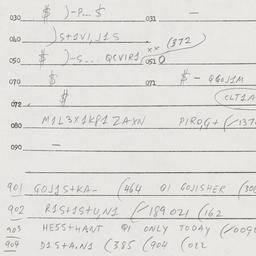 030 $ )-P... $ 031 —
040 )S+1V1,J1S (372
050 $ )-S... QCVIR1 ×× 051 0
070 $ 071 $ - GGOJ1M
072 $ (CLT1A
080 M1L3X1KP1 ZAXN P1ROG+ (137
090 —
901 GOJ1S+KA- (464 01 GOJISHER (30
902 R1S+1S+U,N1 (189 021 (162
903 HESS+HANT 01 ONLY TODAY (009
904 D1S+A.N1 (385 (904 (022